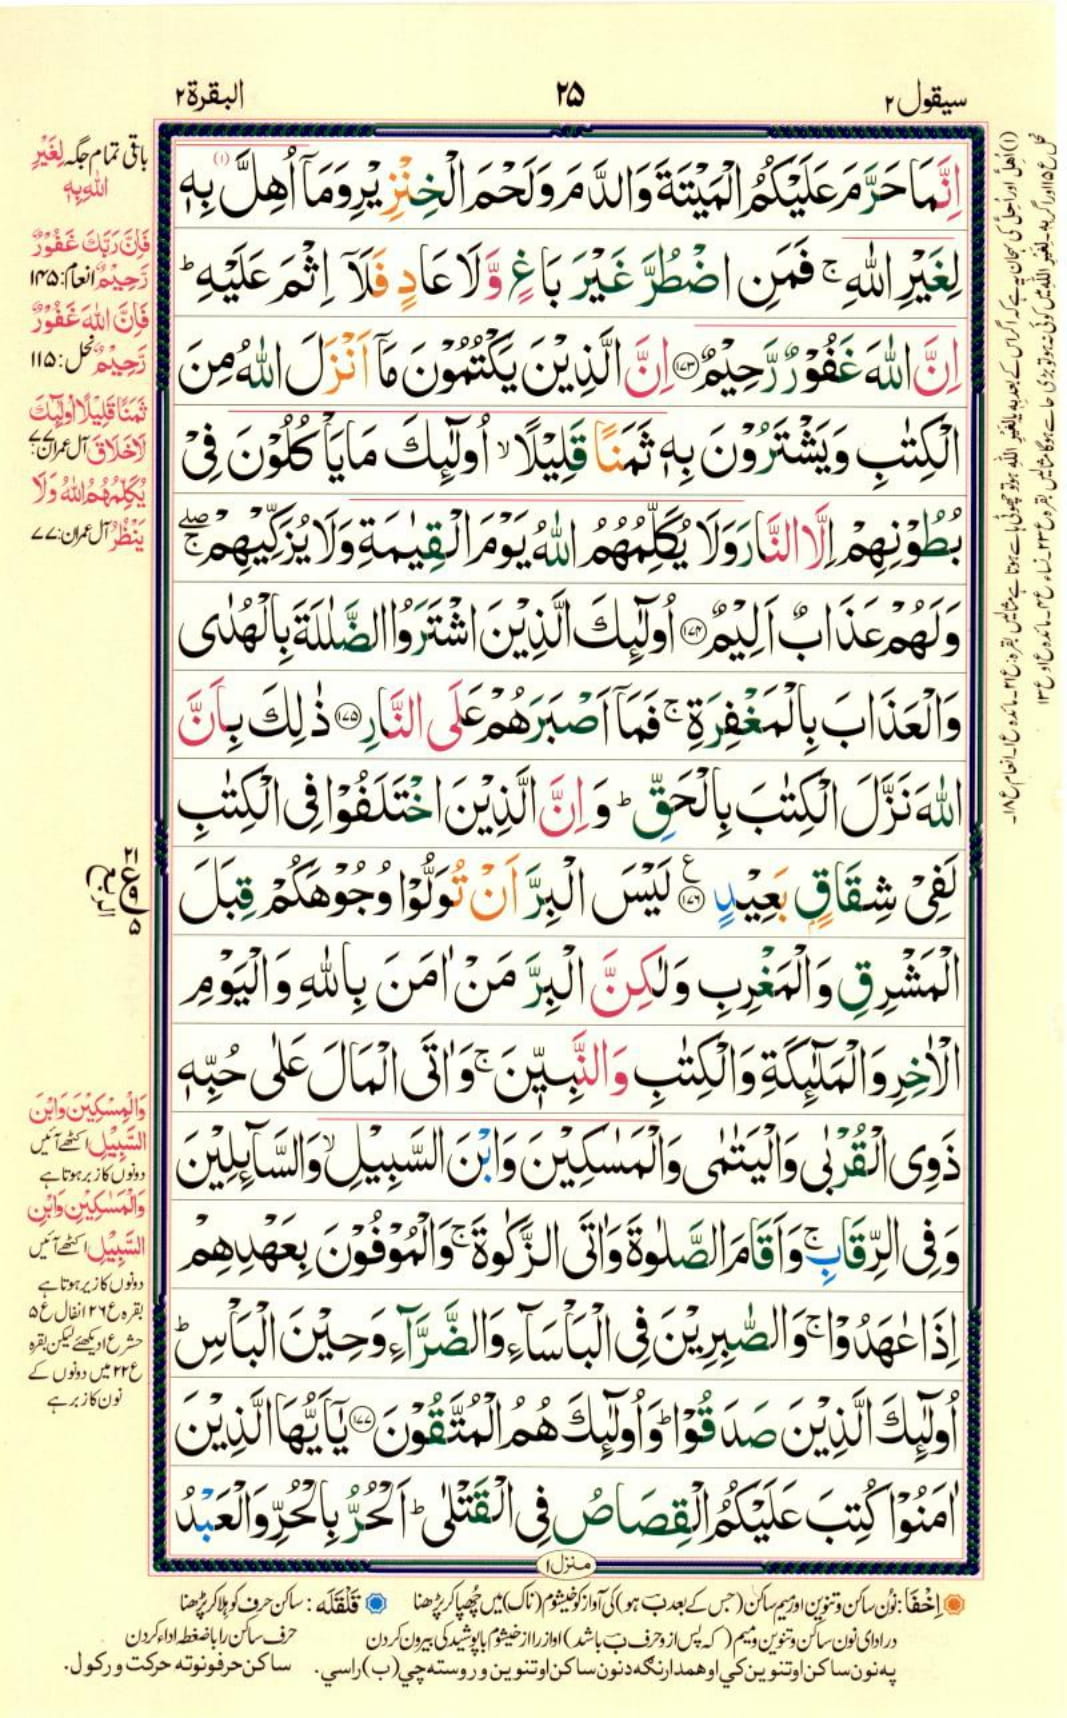 سيقول ٢
٢٥
البقرة ٢
اِنَّمَا حَرَّمَ عَلَيْكُمُ الْمَيْتَةَ وَالدَّمَ وَلَحْمَ الْخِنْزِيْرِ وَمَاۤ اُهِلَّ بِهٖ (١)
لِغَيْرِ اللّٰهِ ۚ فَمَنِ اضْطُرَّ غَيْرَ بَاغٍ وَّلَا عَادٍ فَلَاۤ اِثْمَ عَلَيْهِ ؕ
اِنَّ اللّٰهَ غَفُوْرٌ رَّحِيْمٌ ۝۱۷۳ اِنَّ الَّذِيْنَ يَكْتُمُوْنَ مَاۤ اَنْزَلَ اللّٰهُ مِنَ
الْكِتٰبِ وَيَشْتَرُوْنَ بِهٖ ثَمَنًا قَلِيْلًا ۙ اُولٰٓئِكَ مَا يَاْكُلُوْنَ فِيْ
بُطُوْنِهِمْ اِلَّا النَّارَ وَلَا يُكَلِّمُهُمُ اللّٰهُ يَوْمَ الْقِيٰمَةِ وَلَا يُزَكِّيْهِمْ ۖۚ
وَلَهُمْ عَذَابٌ اَلِيْمٌ ۝۱۷۴ اُولٰٓئِكَ الَّذِيْنَ اشْتَرَوُا الضَّلٰلَةَ بِالْهُدٰى
وَالْعَذَابَ بِالْمَغْفِرَةِ ۚ فَمَاۤ اَصْبَرَهُمْ عَلَى النَّارِ ۝۱۷۵ ذٰلِكَ بِاَنَّ
اللّٰهَ نَزَّلَ الْكِتٰبَ بِالْحَقِّ ؕ وَ اِنَّ الَّذِيْنَ اخْتَلَفُوْا فِى الْكِتٰبِ
لَفِيْ شِقَاقٍۭ بَعِيْدٍ ۝۱۷۶ ع لَيْسَ الْبِرَّ اَنْ تُوَلُّوْا وُجُوْهَكُمْ قِبَلَ
الْمَشْرِقِ وَالْمَغْرِبِ وَلٰكِنَّ الْبِرَّ مَنْ اٰمَنَ بِاللّٰهِ وَالْيَوْمِ
الْاٰخِرِ وَالْمَلٰٓئِكَةِ وَالْكِتٰبِ وَالنَّبِيّٖنَ ۚ وَاٰتَى الْمَالَ عَلٰى حُبِّهٖ
ذَوِى الْقُرْبٰى وَالْيَتٰمٰى وَالْمَسٰكِيْنَ وَابْنَ السَّبِيْلِ ۙ وَالسَّآئِلِيْنَ
وَفِى الرِّقَابِ ۚ وَاَقَامَ الصَّلٰوةَ وَاٰتَى الزَّكٰوةَ ۚ وَالْمُوْفُوْنَ بِعَهْدِهِمْ
اِذَا عٰهَدُوْا ۚ وَالصّٰبِرِيْنَ فِى الْبَاْسَآءِ وَالضَّرَّآءِ وَحِيْنَ الْبَاْسِ ؕ
اُولٰٓئِكَ الَّذِيْنَ صَدَقُوْا ؕ وَاُولٰٓئِكَ هُمُ الْمُتَّقُوْنَ ۝۱۷۷ يٰۤاَيُّهَا الَّذِيْنَ
اٰمَنُوْا كُتِبَ عَلَيْكُمُ الْقِصَاصُ فِى الْقَتْلٰى ؕ اَلْحُرُّ بِالْحُرِّ وَالْعَبْدُ
منزل ١
باقی تمام جگہ لِغَيْرِ
اللّٰهِ بِهٖ
فَاِنَّ رَبَّكَ غَفُوْرٌ
رَّحِيْمٌ انعام: ۱۴۵
فَاِنَّ اللّٰهَ غَفُوْرٌ
رَّحِيْمٌ نحل: ۱۱۵
ثَمَنًا قَلِيْلًا اُولٰٓئِكَ
لَا خَلَاقَ آل عمران: ۷۷
يُكَلِّمُهُمُ اللّٰهُ وَلَا
يَنْظُرُ آل عمران: ۷۷
۲۱
ع
۹
۵
وَالْمِسْكِيْنَ وَابْنَ
السَّبِيْلِ اکٹھے آئیں
دونوں کا زبر ہوتا ہے
وَالْمَسٰكِيْنِ وَابْنِ
السَّبِيْلِ اکٹھے آئیں
دونوں کا زیر ہوتا ہے
بقرہ ع ۲۶ انفال ع ۵
حشر ع ا دیکھئے لیکن بقرہ
ع ۲۲ میں دونوں کے
نون کا زبر ہے
اِخْفَا: نُون ساکن و تنوین اور میم ساکن (جس کے بعد بَ ہو) کی آواز کو خیشوم (ناک) میں چُھپا کر پڑھنا
قَلْقَلَه: ساکن حرف کو ہلا کر پڑھنا
در ادای نون ساکن و تنوین و میم (که پس از و حرف ب باشد) اواز را از خیشوم با پوشیدگی بیرون کردن
حرف ساکن را با ضغطه اداء کردن
په نون ساکن او تنوین کي او همدارنګه د نون ساکن او تنوین وروسته چي (ب) راسي.
ساکن حرفونو ته حرکت ورکول.